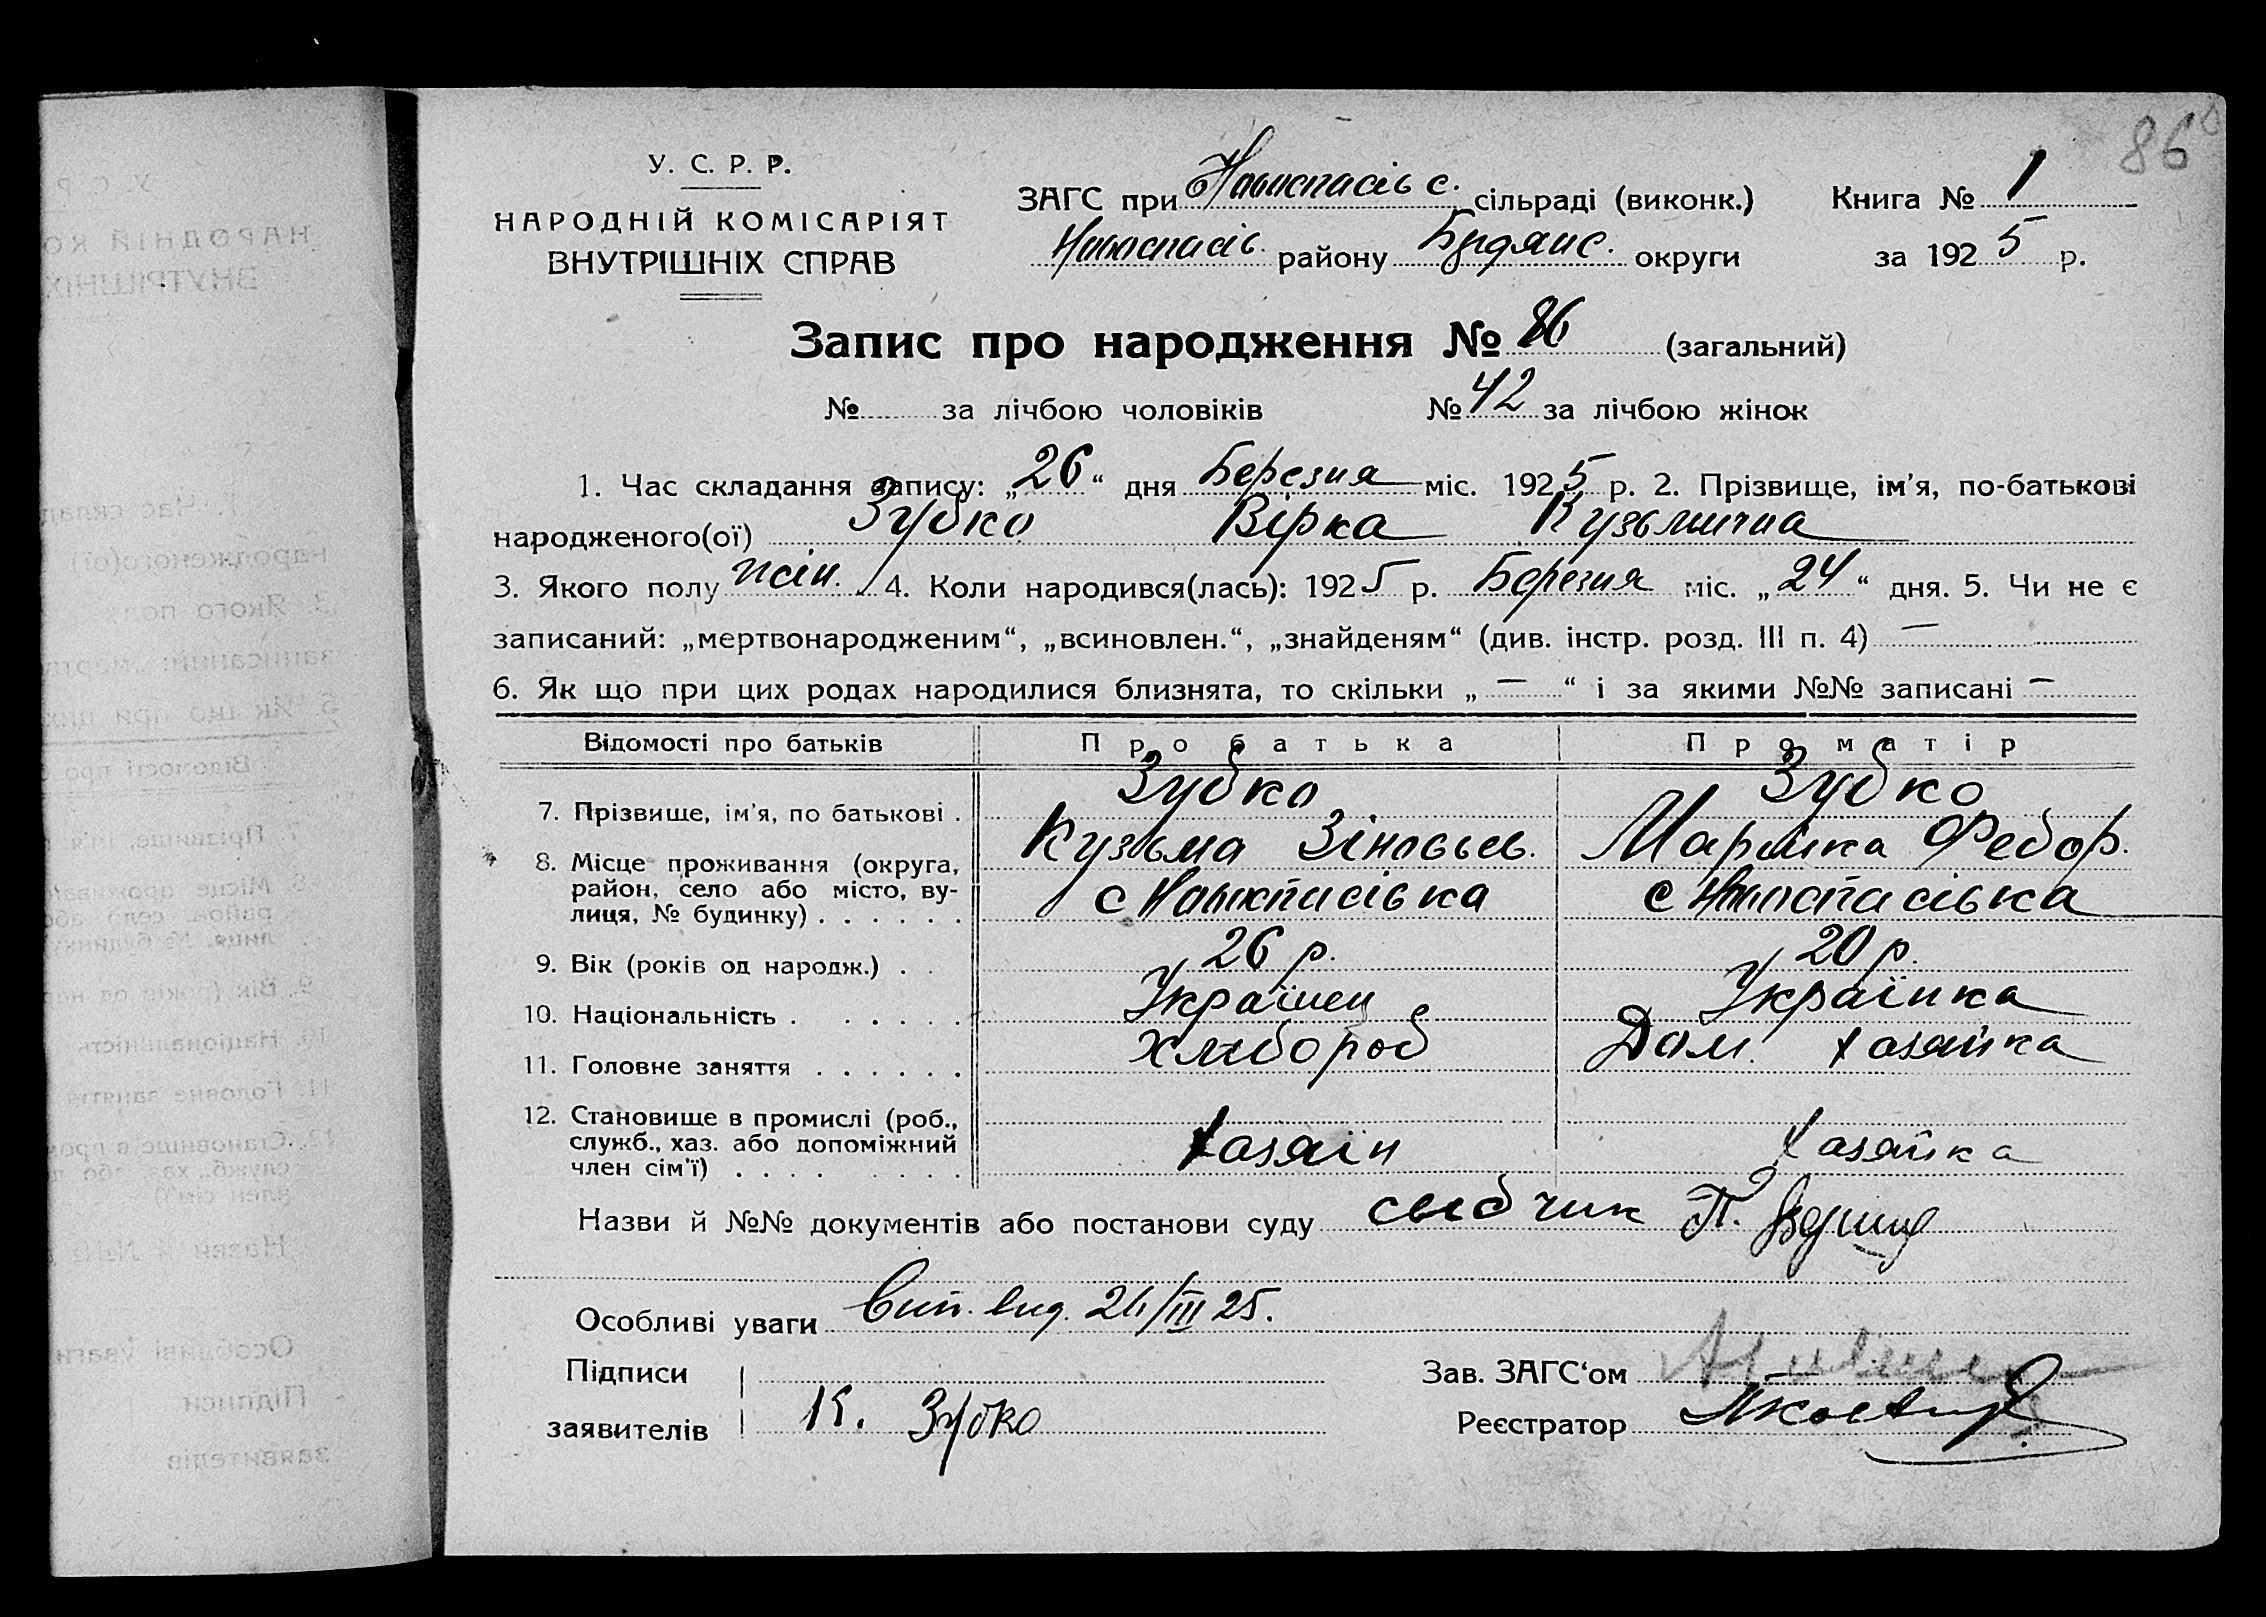 86
У. С. Р. Р.
НАРОДНІЙ КОМІСАРІЯТ
ВНУТРІШНІХ СПРАВ
ЗАГС при сільраді (виконк.) Книга № 1
району округи за 1925 р.
Запис про народження № 86 (загальний)
№ за лічбою чоловіків № 42 за лічбою жінок
1. Час складання запису: „26“ дня Березня міс. 1925 р. 2. Прізвище, ім'я, по-батькові
народженого(ої) Зубко Вірка Кузьмична
3. Якого полу жін. 4. Коли народився(лась): 1925 р. Березня міс. „24“ дня. 5. Чи не є
записаний: „мертвонародженим“, „всиновлен.“, „знайденям“ (див. інстр. розд. III п. 4) —
6. Як що при цих родах народилися близнята, то скільки „ — “ і за якими №№ записані —
Відомості про батьків Про батька Про матір
7. Прізвище, ім'я, по батькові . Зубко Зубко
Кузьма Зіновьев. Марійка Федор.
8. Місце проживання (округа,
район, село або місто, вулиця, № будинку) . . . . . . с с
9. Вік (років од народж.) . . 26 р. 20 р.
10. Національність . . . . . . Українец Українка
11. Головне заняття . . . . . . Хлибороб Дом. хазяйка
12. Становище в промислі (роб.,
служб., хаз. або допоміжний
член сім'ї) . . . . . . . . Хазяін Хазяйка
Назви й №№ документів або постанови суду П.
Особливі уваги Вип. вид. 26/III 25.
Підписи
заявителів К. Зубко
Зав. ЗАГС'ом
Реєстратор